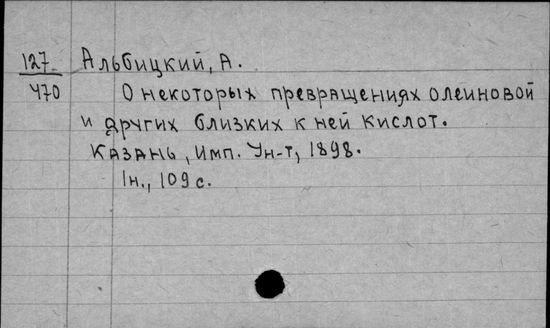 127
470
Альбицкий, А.
О некоторых превращениях олеиновой
и других близких к ней кислот.
Казань, Имп. Ун-т, 1898.
1н., 109 с.